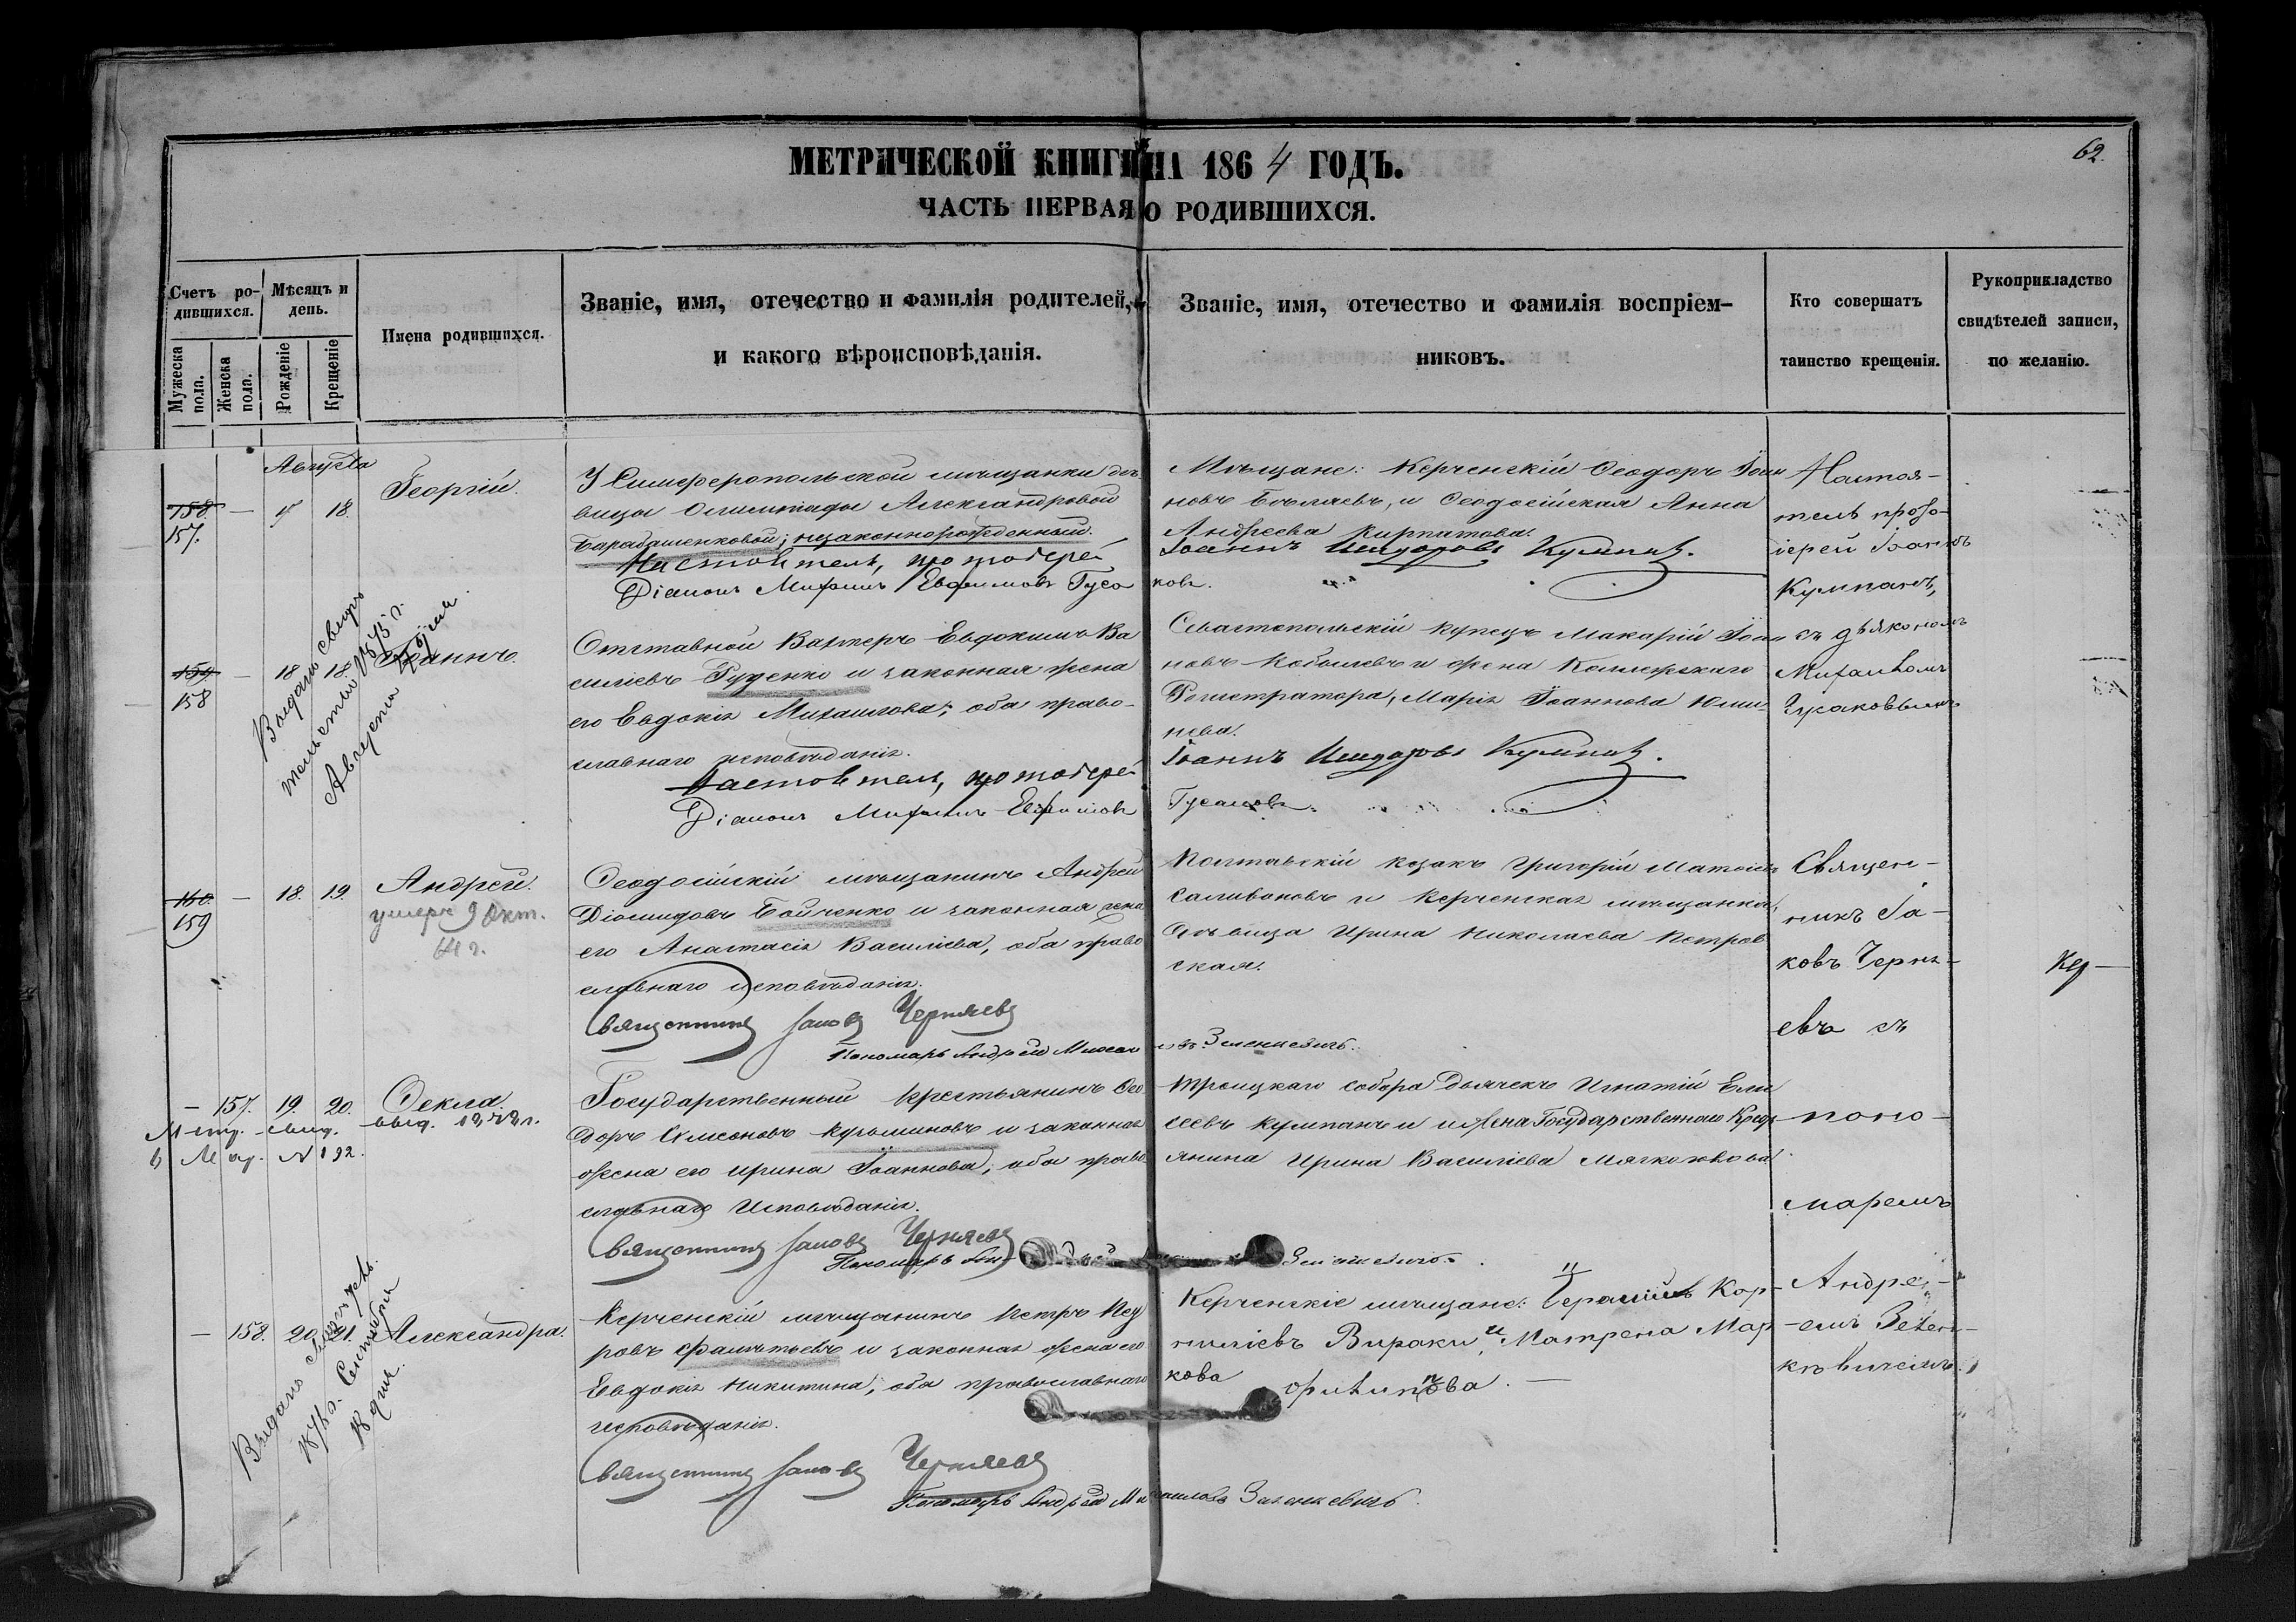 62.
МЕТРИЧЕСКОЙ КНИГИ НА 1864 ГОДЪ.
ЧАСТЬ ПЕРВАЯ О РОДИВШИХСЯ.
Счетъ ро-
дившихся.
Мужеска
пола.
Женска
пола.
Мѣсяцъ и
день.
Рожденіе
Крещеніе
Имена родившихся.
Званіе, имя, отечество и фамилія родителей,
и какого вѣроисповѣданія.
Званіе, имя, отечество и фамилія воспріем-
никовъ.
Кто совершатъ
таинство крещенія.
Рукоприкладство
свидѣтелей записи,
по желанію.
Августа
158.
157.
—
18.
Георгій.
У Симферопольской мѣщанки дѣ
вицы Олимпіады Александровой
Барабашенковой; незаконнорожденный.
Настоятель, протоіерей
Діаконъ Михаилъ Ефимовъ Гуса
Мѣщане: Керченскій Ѳеодоръ Іоан
новъ Бѣляевъ, и Ѳеодосійская Анна
Андреева Кирпатова.
Іоаннъ Исидоровъ Кумпанъ.
ковъ.
Настоя-
тель прото-
іерей Іоаннъ
Кумпанъ,
съ діякономъ
Михаиломъ
159
158
—
18
18.
Іоаннъ.
Выдано свидѣ
тельство 1875 г.
Августа
дня
Отставной Вахтеръ Евдокимъ Ва
силіевъ Руденко и законная жена
его Евдокія Михаилова; оба право-
славнаго исповѣданія.
Настоятель, протоіерей
Діаконъ Михаилъ Ефимовъ
Севастопольскій купецъ Макарій Іоан
новъ Кобылевъ и жена Коллежскаго
Регистратора, Марія Іоаннова Юши-
нева.
Іоаннъ Исидоровъ Кумпанъ.
Гусаковъ.
160.
159
—
18.
19.
Андрей.
умеръ 9 Окт.
64 г.
Ѳеодосійскій мѣщанинъ Андрей
Діомидовъ Бойченко и законная жена
его Анастасія Василіева, оба право
славнаго исповѣданія.
Священникъ Іаковъ Черняевъ
Пономарь Андрей Михаи
Полтавскій козакъ Григорій Матѳіевъ
Саливоновъ и Керченская мѣщанка,
дѣвица Ирина Николаева Петров
ская.
Зеленкевичъ.
Священ-
никъ Іа-
ковъ Черня-
евъ съ
Кер—
—
157.
19.
20.
Ѳекла
Метр. свид. выд. 1873 г.
№ 192.
Государственный крестьянинъ Ѳео
доръ Симеоновъ Кузьминовъ и законная
жена его Ирина Іоаннова; оба право
славнаго исповѣданія.
Священникъ Іаковъ Черняевъ
Пономарь Ан
Троицкаго собора Дьячекъ Игнатій Ели
сеевъ Кумпанъ и жена Государственнаго Крест
янина Ирина Василіева Мягкохлѣбова
Зеленкевичъ.
поно-
маремъ
—
158.
20.
21.
Александра.
Выдано Свидѣт.
187 г. Сентября
18 дня.
Керченскій мѣщанинъ Петръ Пет
ровъ Фаліотьевъ и законная жена его
Евдокія Никитина; оба православнаго
исповѣданія.
Священникъ Іаковъ Черняевъ
Пономарь Андрей Михаиловъ Зеленкевичъ.
Керченскіе мѣщане: Герасимъ Кор-
ниліевъ Вираки, и Матрена Мар
кова Филипова.—
Андре-
емъ Зелен-
кевичемъ.